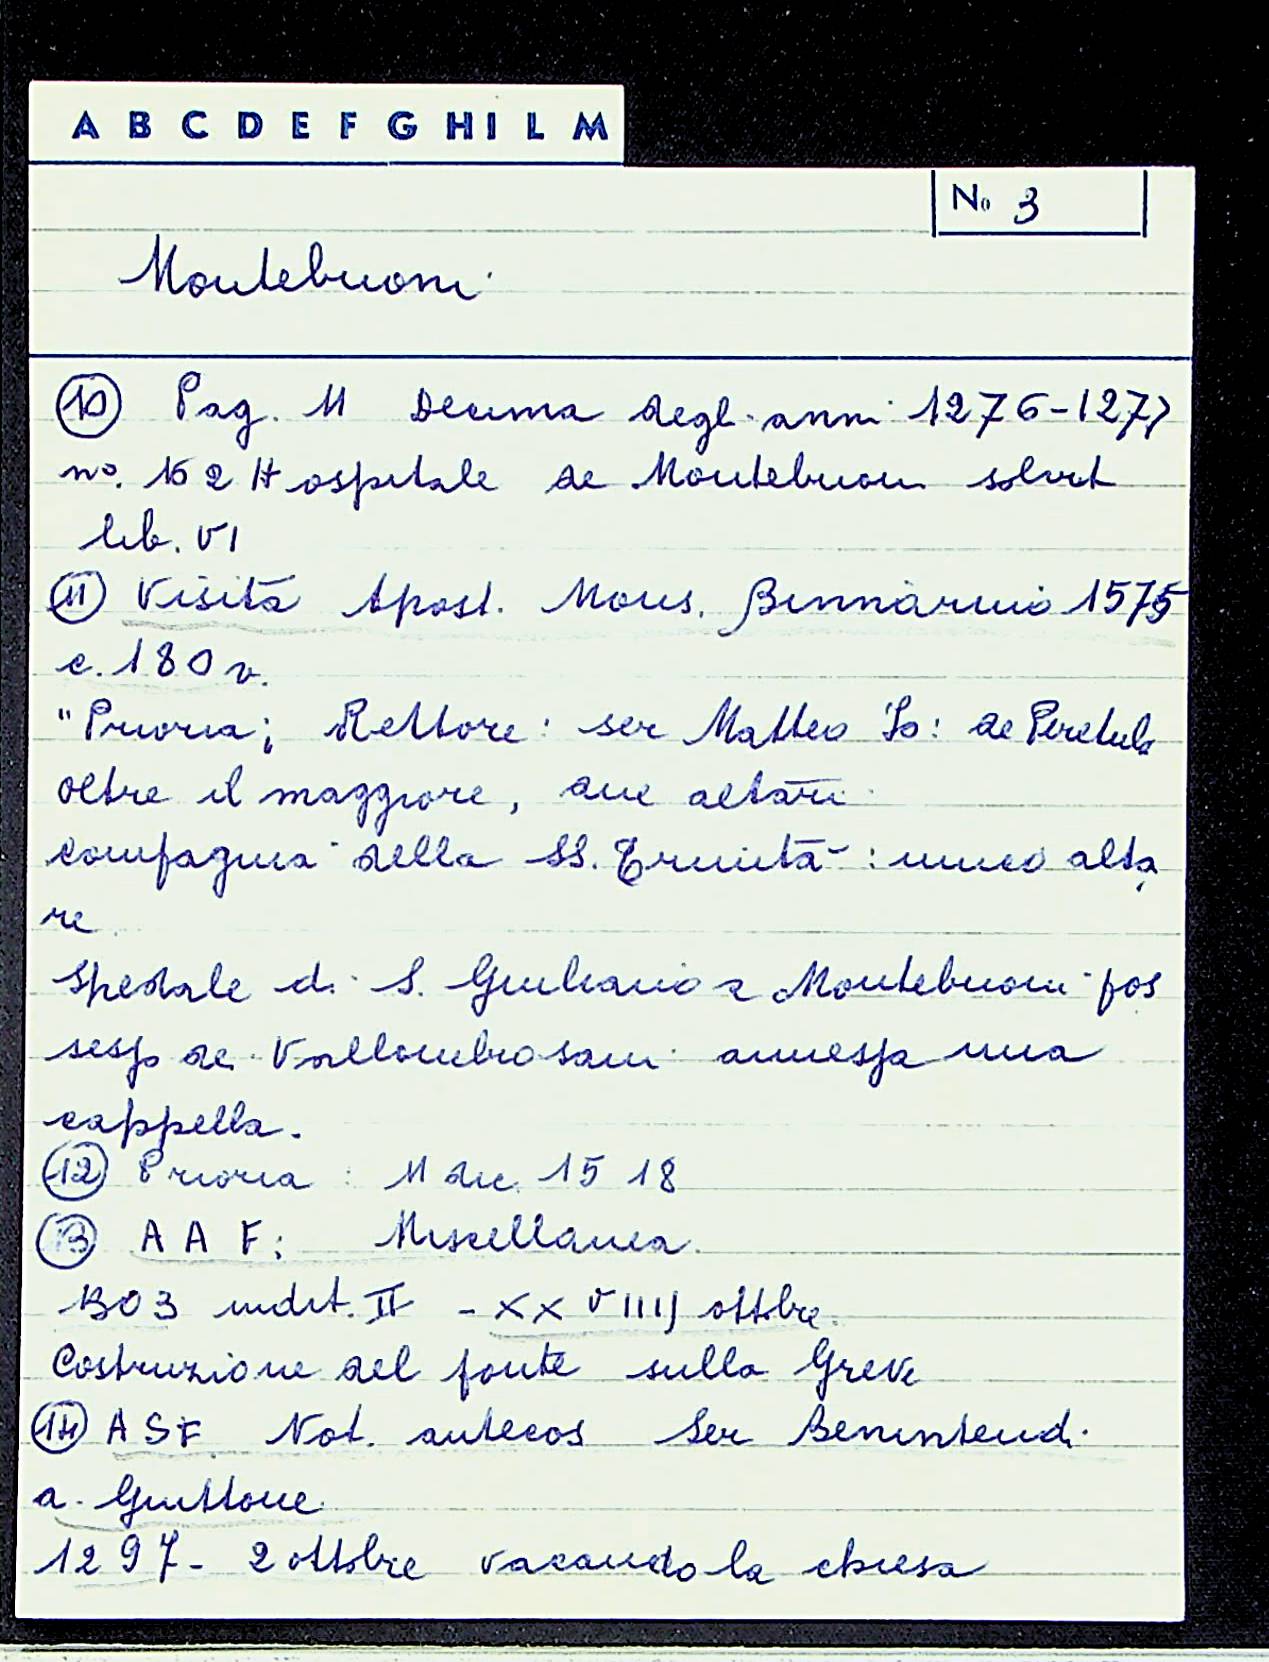 A B C D E F G H I L M
No 3
Montebuoni
10 Pag. 11 Decima degli anni 1276-1277
no. 162 Hospitale de Montebuoni solvit
lib. VI
11 Visita Apost. Mons. Binnarinio 1575
c. 180 v.
"Prioria; Rettore: ser Matteo Io: de Peretula
oltre il maggiore, due altari
compagnia della SS. Trinità: unico alta
re
Spedale di S. Giuliano a Montebuoni pos
sesso dei Vallombrosani annessa una
cappella.
12 Prioria: 11 dic. 1518
13 AAF: Miscellanea.
1303 indit. II - XXVIIII ottobre.
Costruzione del ponte sulla Greve
14 ASF Not. antecos Ser Benintendi
a. Guittone
1297- 2 ottobre vacando la chiesa